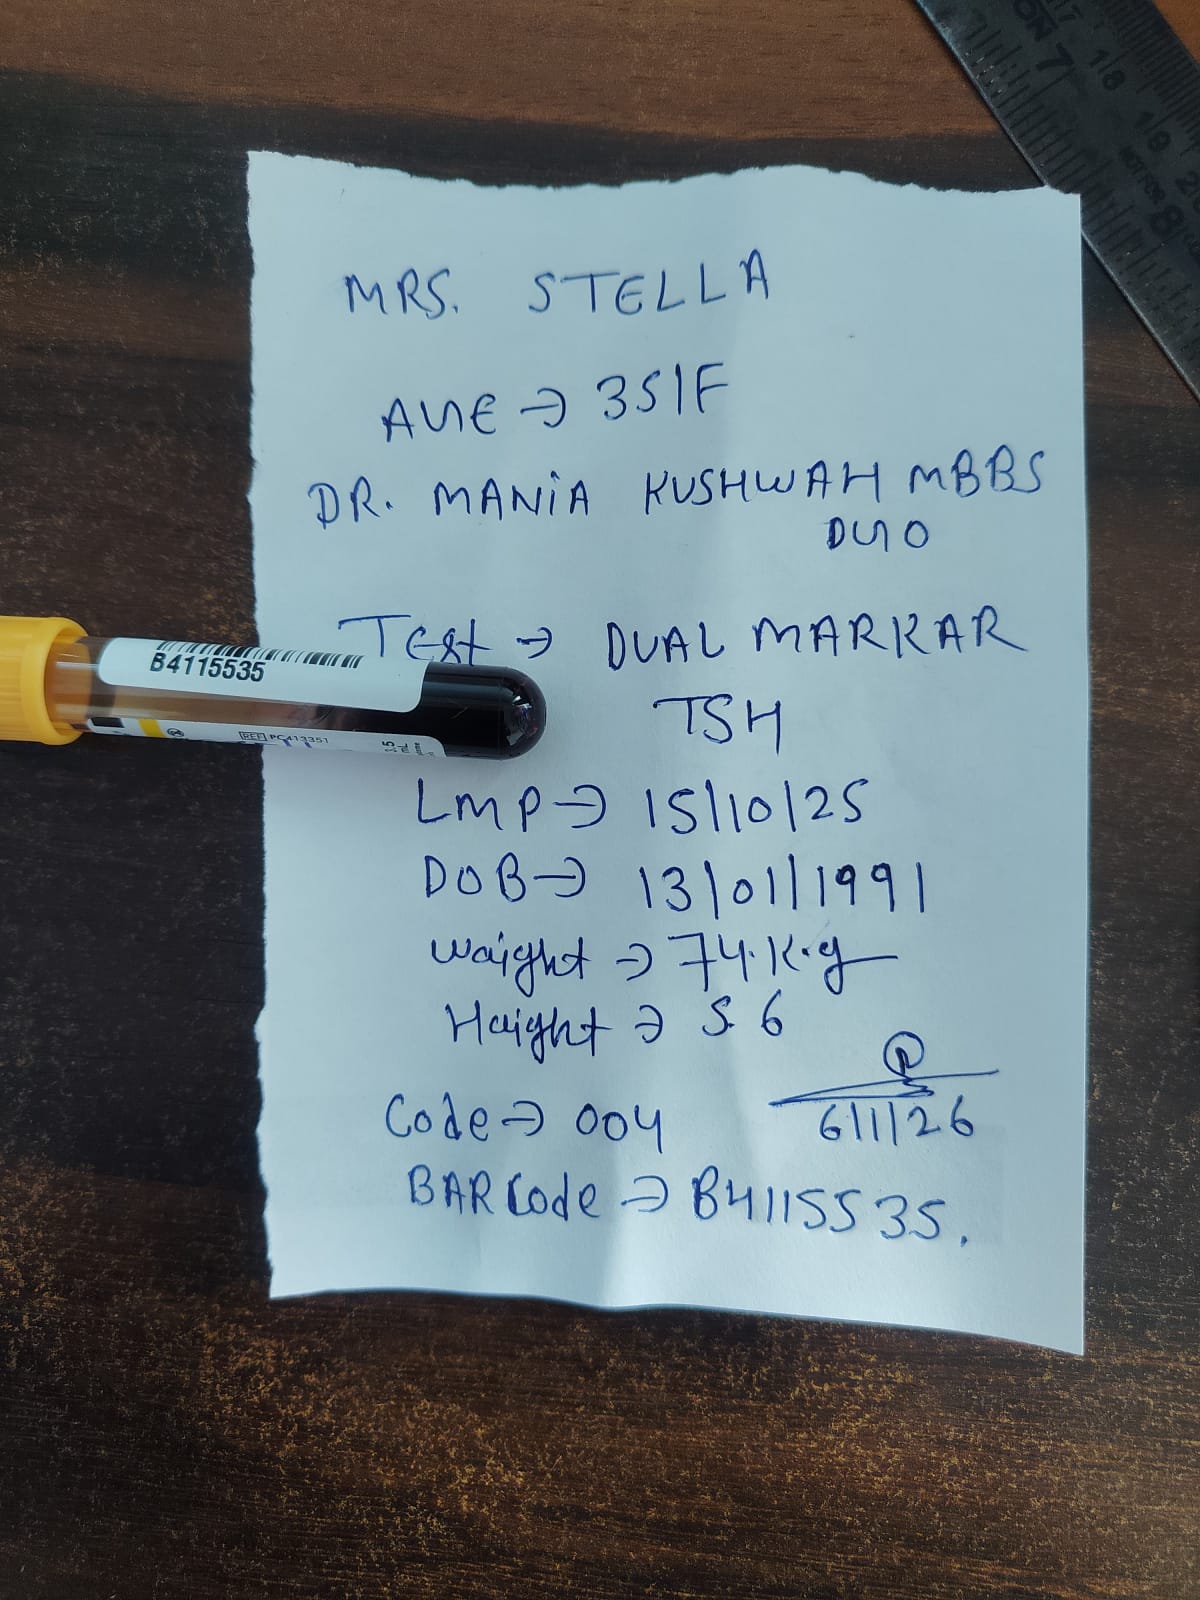 MRS. STELLA
AGE → 35/F
DR. MANIA KUSHWAH MBBS
DGO
Test → DUAL MARKAR
TSH
B4115535
REF PC413351
LMP → 15/10/25
DOB → 13/01/1991
Waight → 74.K.g
Haight → 5.6
6/1/26
Code → 004
BARCode → B4115535.